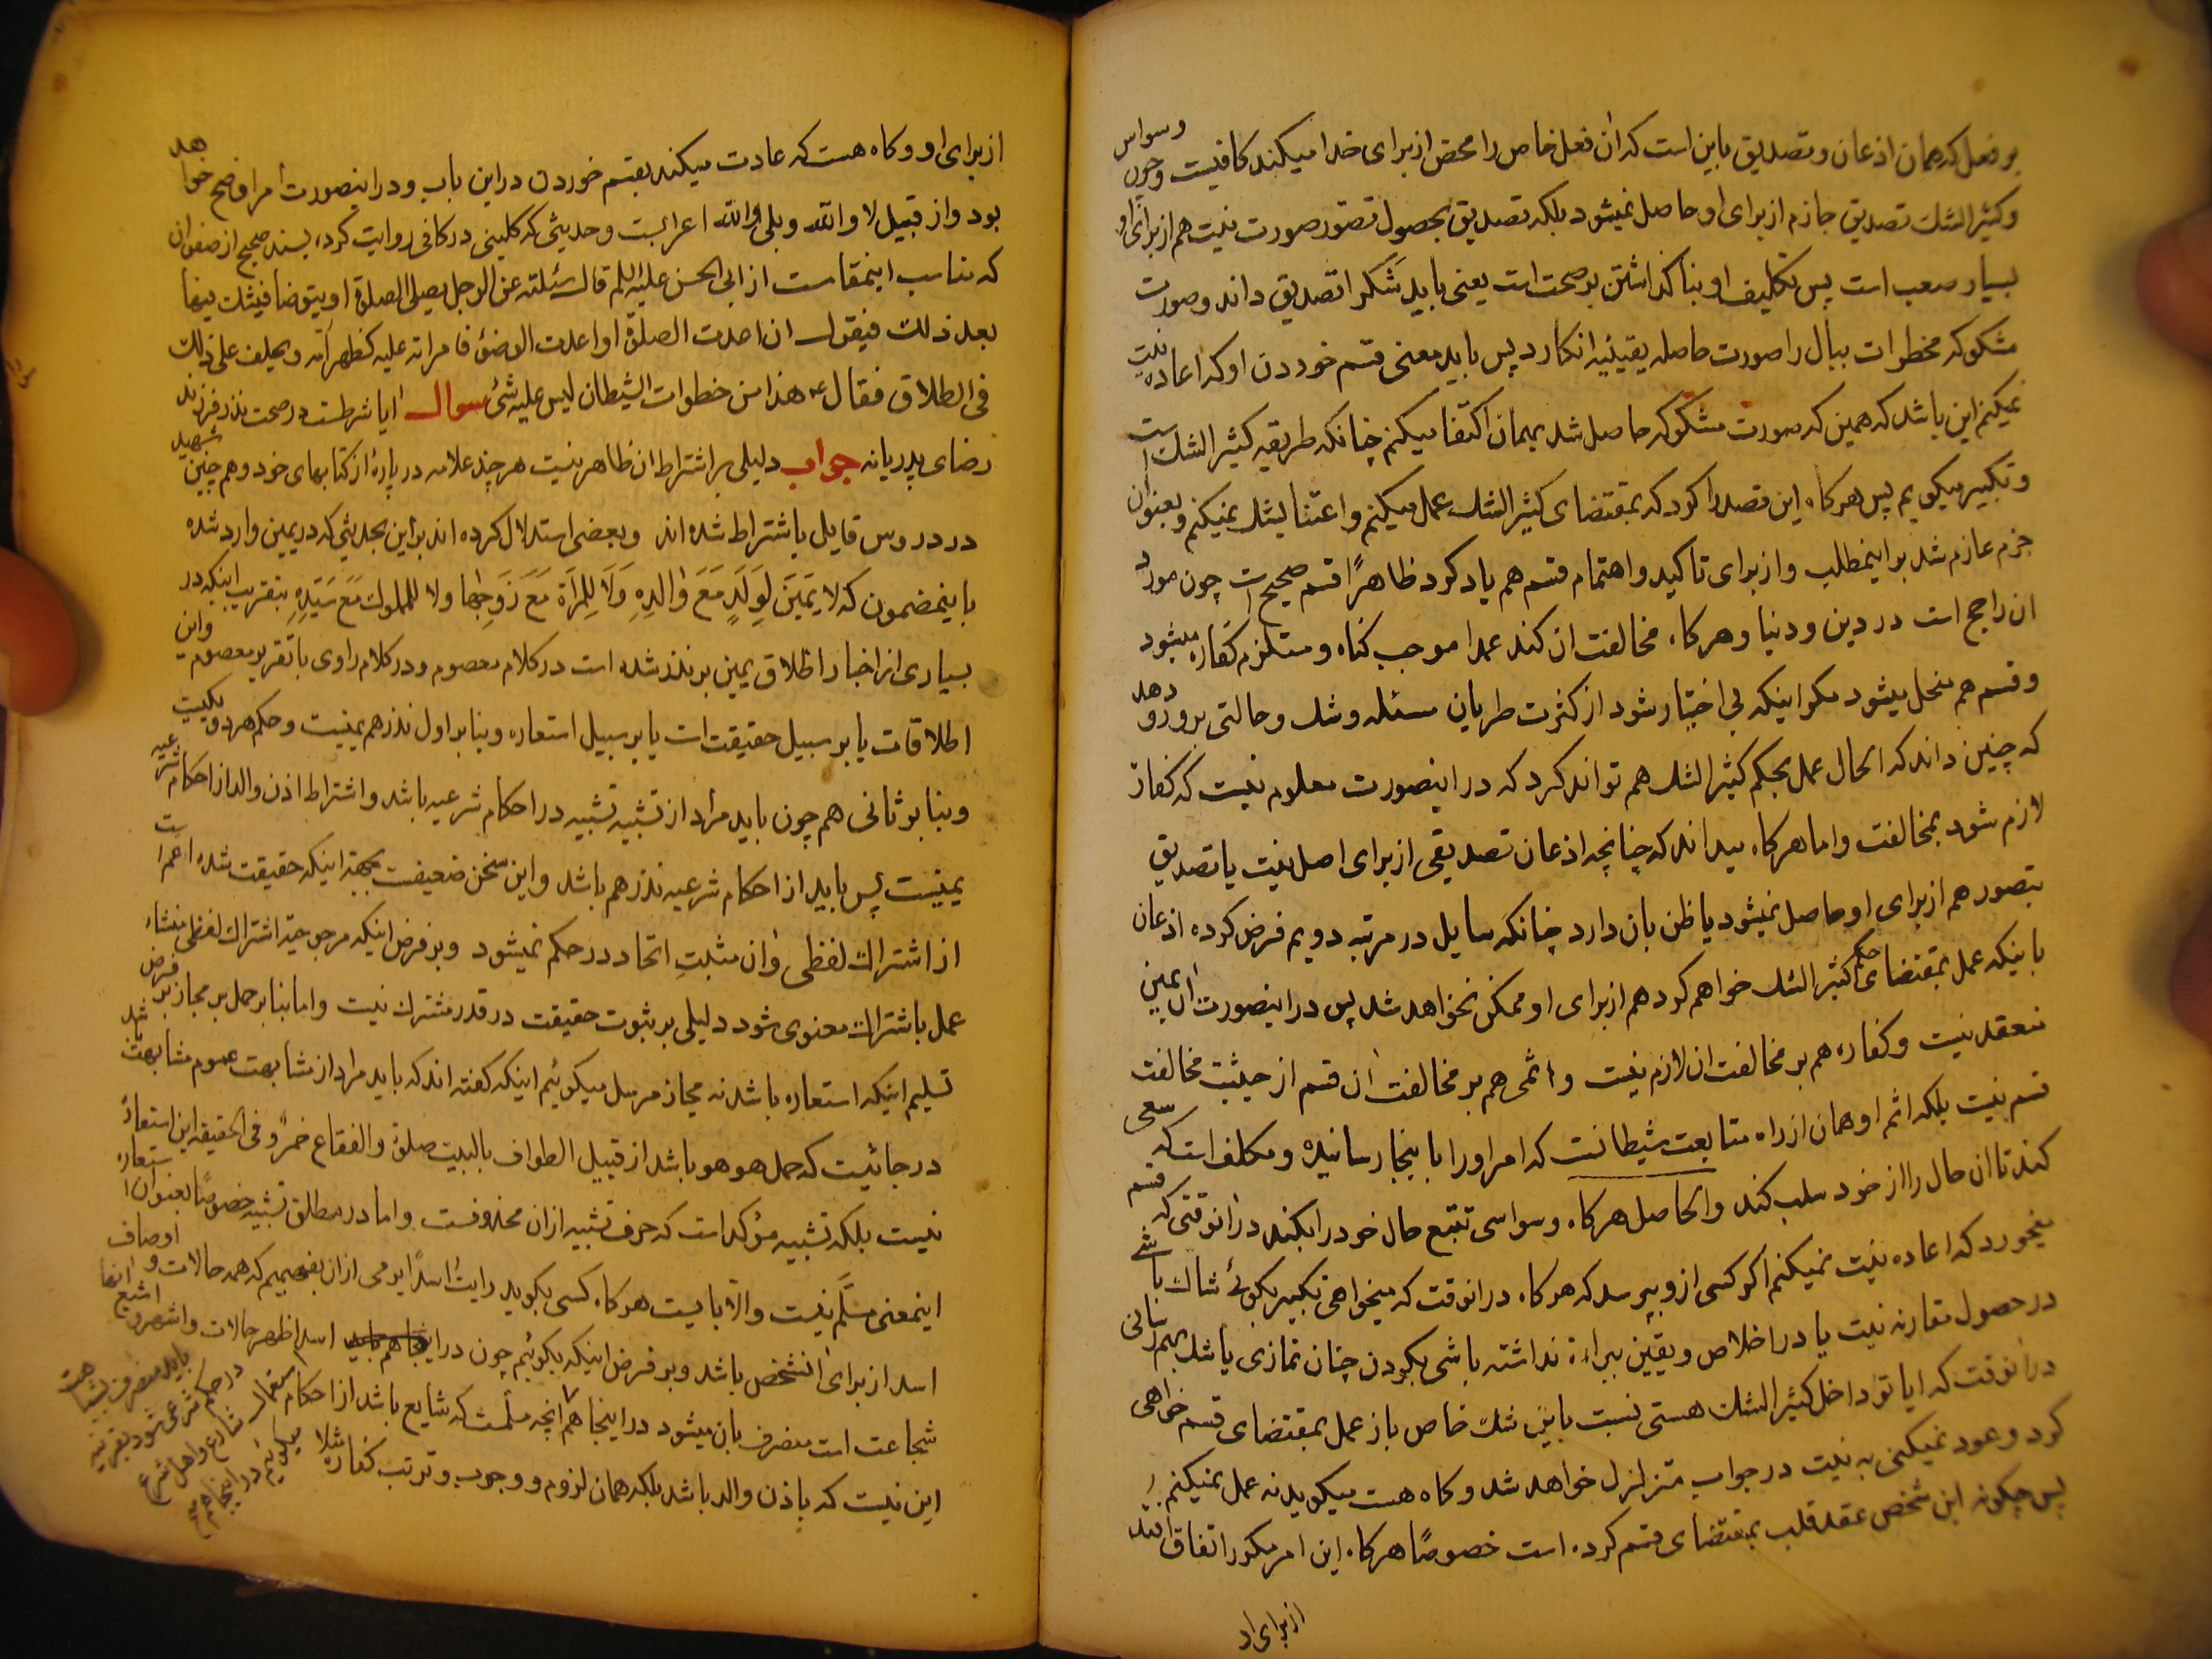 بر فعل که همان اذعان و تصدیق باین است که آن فعل خاص را محض از برای خدا میکند کافیست و چون وسواس
و کثیر الشك تصدیق جازم از برای او حاصل نمیشود بلکه تصدیق بحصول تصور صورت نیت هم از برای او
بسیار صعب است پس تکلیف او بنا گذاشتن بر صحت است یعنی باید شکرا تصدیق داند و صورت
مشکوکه مخطرات ببال را صورت حاصله یقینیه انکارد پس باید معنی قسم خوردن او که اعاده نیت
نمیکنم این باشد که همین که صورت مشکوکه حاصل شد بهمان اکتفا میکنم چنانکه طریقه کثیر الشك است
و تکبیر میکویم پس هرکاه این قصد را کرد که بمقتضای کثیر الشك عمل میکنم و اعتنا بشك نمیکنم و بعنوان
جزم عازم شد بر اینمطلب و از برای تاکید و اهتمام قسم هم یاد کرد ظاهرًا قسم صحیح است چون مورد
ان راجح است در دین و دنیا و هرکاه مخالفت ان کند عمدا موجب کناه و مستلزم کفاره میشود
و قسم هم منحل میشود مکر اینکه بی اختیار شود از کثرت طریان مسئله و شك و حالتی برو رو دهد
که چنین داند که الحال عمل بحکم کثیر الشك هم تواند کرد که در اینصورت معلوم نیست که کفاره
لازم شود بمخالفت و اما هرکاه میداند که چنانچه اذعان تصدیقی از برای اصل نیت یا تصدیق
بتصور هم از برای او حاصل نمیشود یا ظن بان دارد چنانکه سایل در مرتبه دویم فرض کرده اذعان
باینکه عمل بمقتضای حکم کثیر الشك خواهم کرد هم از برای او ممکن نخواهد شد پس در اینصورت ان یمین
منعقد نیست و کفاره هم بر مخالفت ان لازم نیست و اثمی هم بر مخالفت ان قسم از حیثیت مخالفت
قسم نیست بلکه اثم او همان از راه متابعت شیطانست که امر او را باینجا رسانیده و مکلف است که سعی
کند تا ان حال را از خود سلب کند و الحاصل هرکاه وسواسی تتبع حال خود را بکند در انوقتی که قسم
میخورد که اعاده نیت نمیکنم اکر کسی از و بپرسد که هرکاه در انوقت که میخواهی تکبیر بکوئی شاك باشی
در حصول مقارنه نیت یا در اخلاص و یقین ببراءة نداشته باشی بکردن چنان نمازی یا شك بهم رسانی
در انوقت که ایا تو داخل کثیر الشك هستی نسبت باین شك خاص باز عمل بمقتضای قسم خواهی
کرد و عود نمیکنی به نیت در جواب متزلزل خواهد شد و کاه هست میکوید نه عمل نمیکنم
پس چکونه این شخص عقد قلب بمقتضای قسم کرده است خصوصًا هرکاه این امر مکرر اتفاق افتد
از برای او
از برای او و کاه هست که عادت میکند بقسم خوردن در این باب و در اینصورت امر اوضح خواهد
بود و از قبیل لا والله و بلی والله اعرابیست و حدیثی که کلینی در کافی روایت کرده بسند صحیح از صفوان
که مناسب اینمقامست از ابی الحسن علیه السلم قال سئلته عن الرجل یصلی الصلوة او یتوضا فیشك فیها
بعد ذلك فیقول ان اعدت الصلوة او اعدت الوضوء فامراته علیه کظهر امّه و یحلف علی ذلك
فی الطلاق فقال ع هذا من خطوات الشیطان لیس علیه شئ سوال ایا شرطست در صحت نذر فرزند
رضای پدر یا نه جواب دلیلی بر اشتراط ان ظاهر نیست هر چند علامه در پارهٔ از کتابهای خود و هم چنین شهید
در دروس قایل باشتراط شده اند و بعضی استدلال کرده اند بر این بحدیثی که در یمین وارد شده
باینمضمون که لا یَمینَ لِوَلَدٍ مَعَ والِدِهِ وَلا لِلمَرأة مَعَ زَوجِها ولا للمملوك مَعَ سَیّدِهِ بتقریب اینکه در
بسیاری از اخبار اطلاق یمین بر نذر شده است در کلام معصوم و در کلام راوی با تقریر معصوم و این
اطلاقات یا بر سبیل حقیقت است یا بر سبیل استعاره و بنا بر اول نذر هم یمینست و حکم هر دو یکیست
و بنا بر ثانی هم چون باید مراد از تشبیه تشبیه در احکام شرعیه باشد و اشتراط اذن والد از احکام شرعیه
یمینست پس باید از احکام شرعیه نذر هم باشد و این سخن ضعیفست بجهة اینکه حقیقت شده اعم است
از اشتراك لفظی و ان مثبتِ اتحاد در حکم نمیشود و بر فرض اینکه مرجوحیّة اشتراك لفظی منشاء
عمل باشتراك معنوی شود دلیلی بر ثبوت حقیقت در قدر مشترك نیست و اما بنا بر حمل بر مجاز بر فرض
تسلیم اینکه استعاره باشد نه مجاز مرسل میکوئیم اینکه کفته اند که باید مراد از مشابهت عموم مشابهت باشد
در جائیست که حمل هو هو باشد از قبیل الطواف بالبیت صلوة و الفقاع خمرٌ و فی الحقیقه این استعارهٔ
نیست بلکه تشبیه مؤکد است که حرف تشبیه از ان محذوفست و اما در مطلق تشبیه خصوصًا بعنوان استعاره
اینمعنی مسلّم نیست و الّا بایست هرکاه کسی بکوید رایت اسدًا یرمی از ان بفهمیم که همه حالات و اوصاف
اسد از برای انشخص باشد و بر فرض اینکه بکوئیم چون در اینجا اسد اظهر حالات و اشهر و اشیع انها
شجاعت است منصرف بان میشود در اینجا هم انچه مسلّمست که شایع باشد از احکام
این نیست که باذن والد باشد بلکه همان لزوم و وجوب و ترتب کفاره مثلا